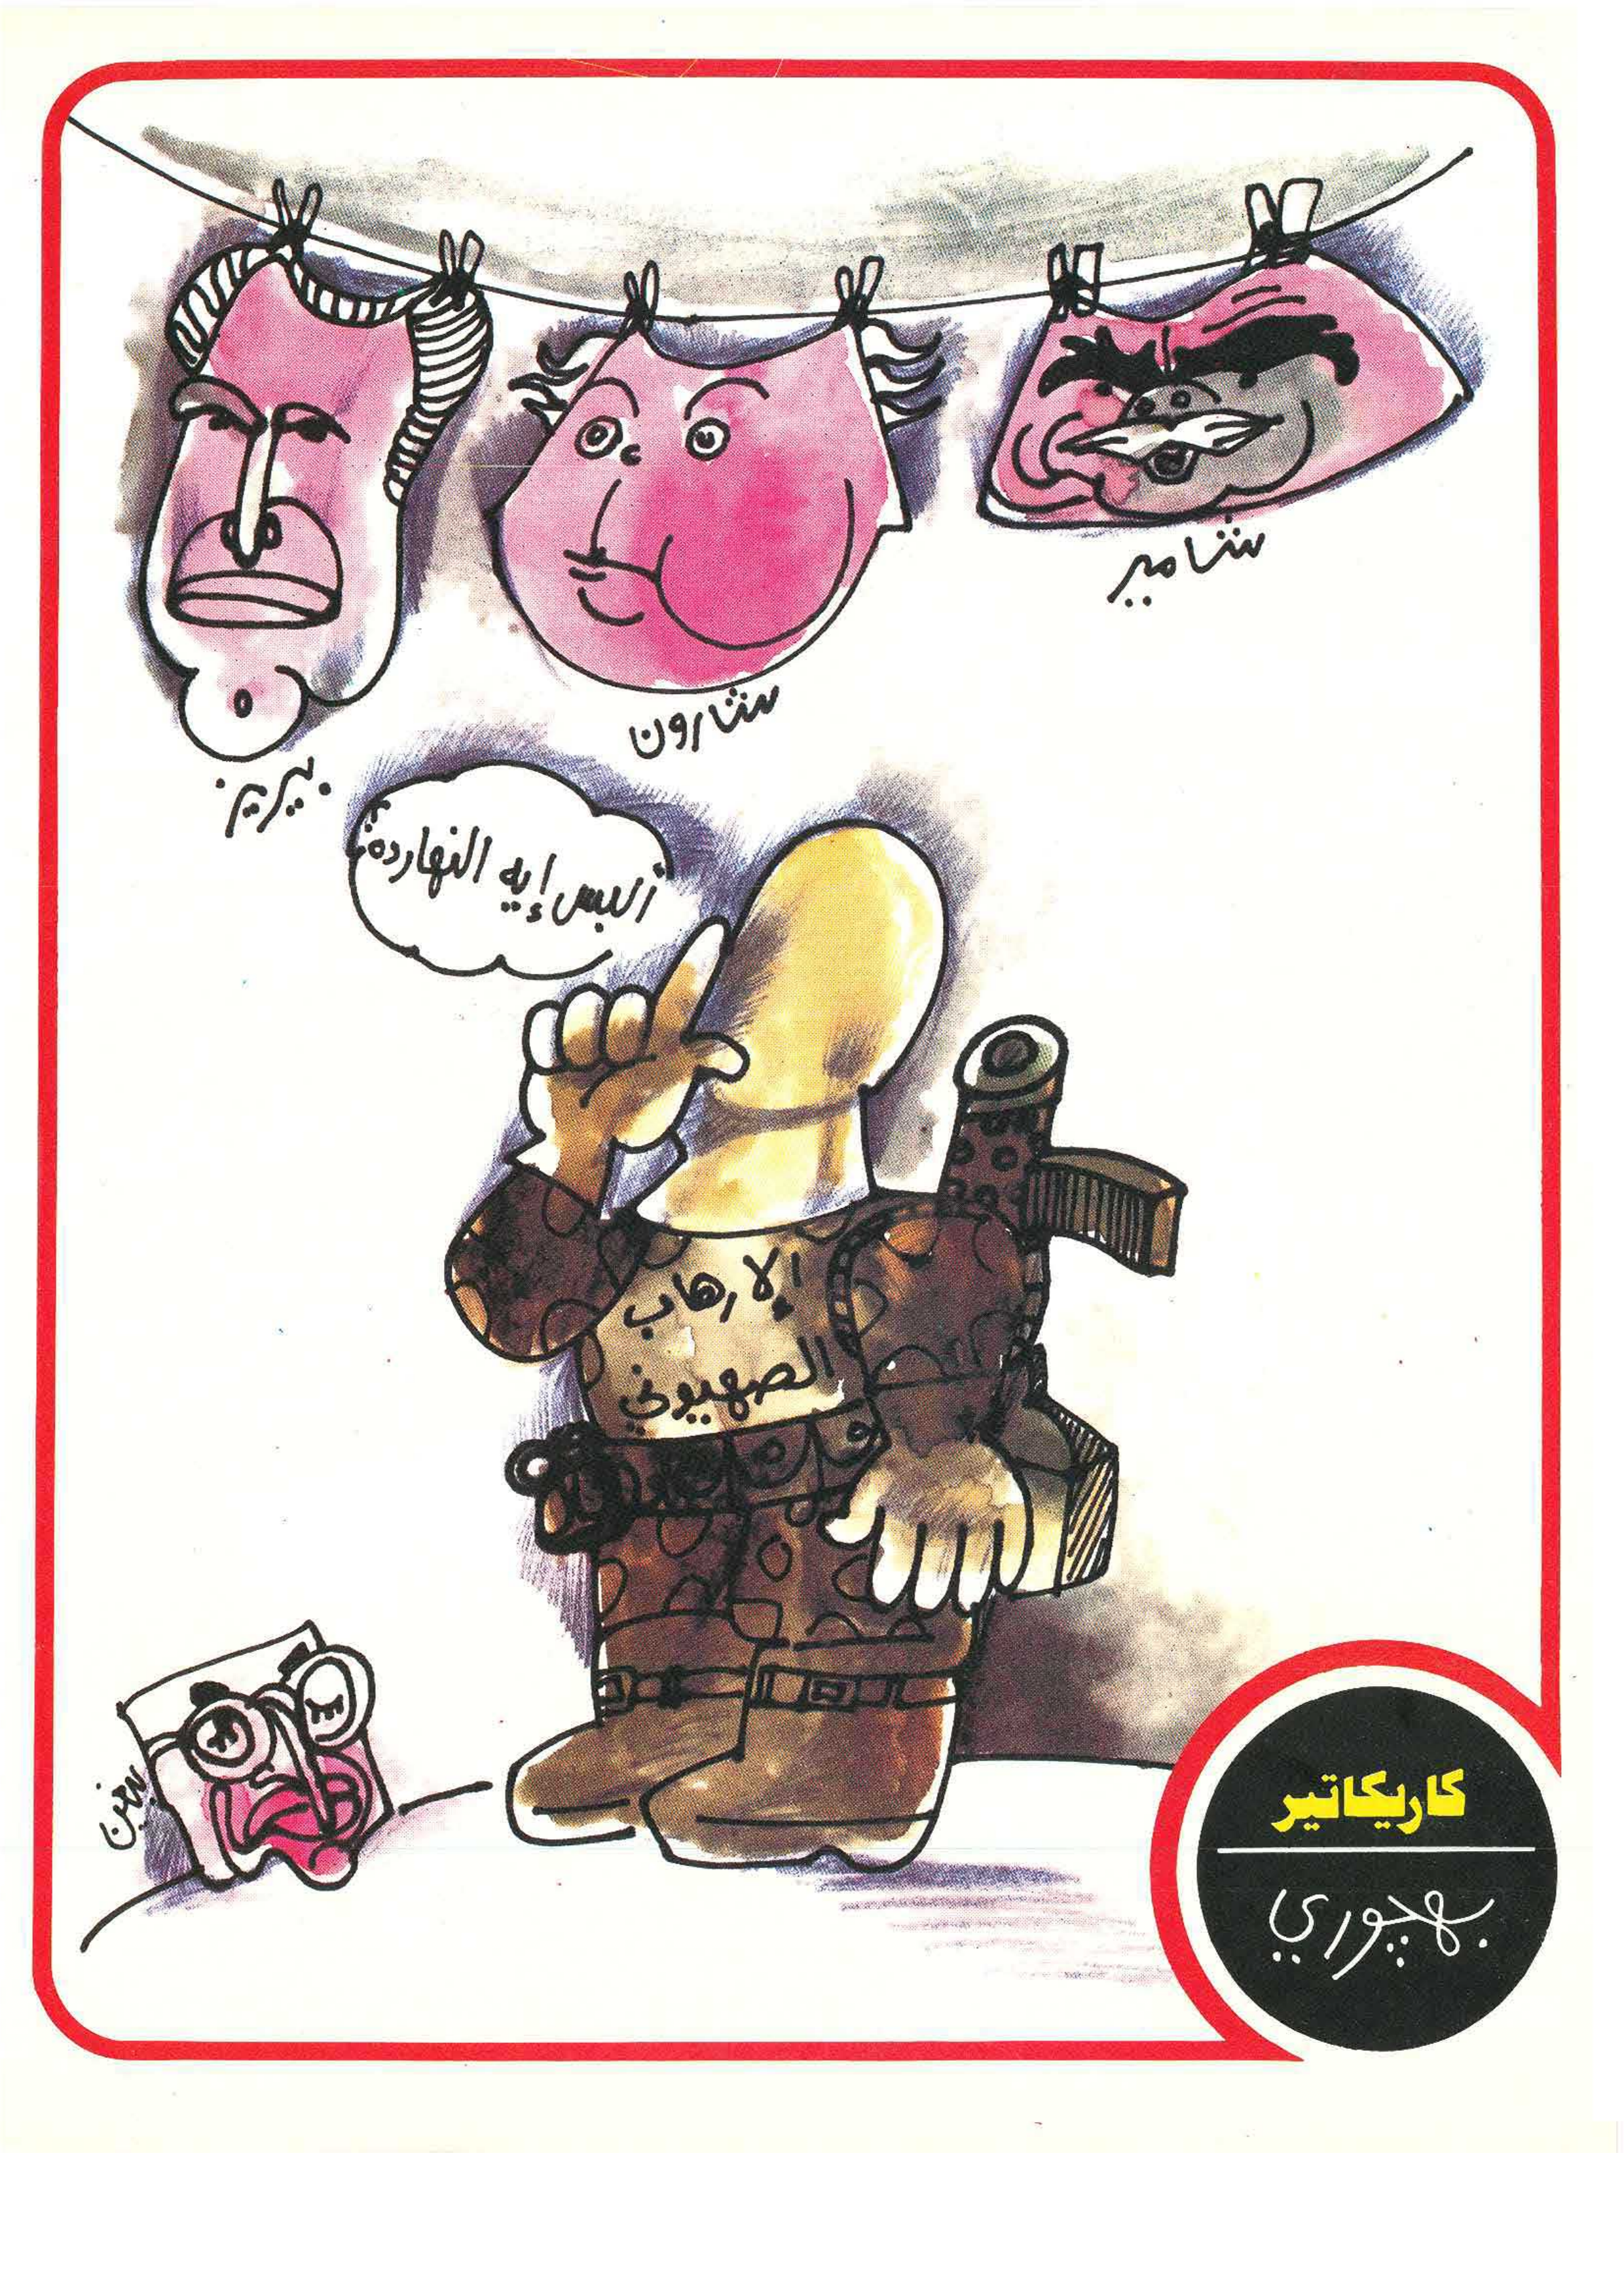 شامير
شارون
بيريز
ألبس إيه النهارده؟
الإرهاب
الصهيوني
بيجن
كاريكاتير
بهجوري